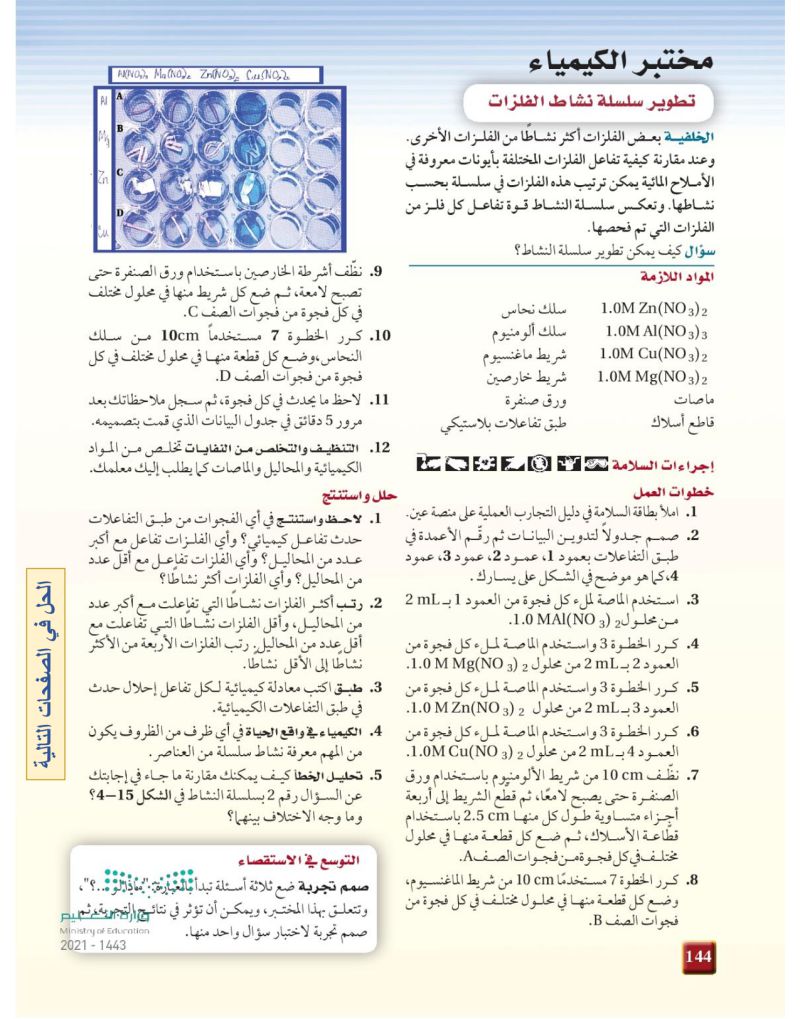 مختبر الكيمياء
تطوير سلسلة نشاط الفلزات
الخلفيـة بعـض الفلزات أكثر نشـاطًا من الفلـزات الأخرى.
وعند مقارنة كيفية تفاعل الفلزات المختلفة بأيونات معروفة في
الأملاح المائية يمكن ترتيب هذه الفلزات في سلسلة بحسب
نشـاطها. وتعكـس سلسلة النشـاط قـوة تفاعـل كل فلـز من
الفلزات التي تم فحصها.
سؤال كيف يمكن تطوير سلسلة النشاط؟
المواد اللازمة
1.0M Zn(NO3)2 سلك نحاس
1.0M Al(NO3)3 سلك ألومنيوم
1.0M Cu(NO3)2 شريط ماغنسيوم
1.0M Mg(NO3)2 شريط خارصين
ماصات ورق صنفرة
قاطع أسلاك طبق تفاعلات بلاستيكي
إجراءات السلامة
خطوات العمل
1. املأ بطاقة السلامة في دليل التجارب العملية على منصة عين.
2. صمـم جـدولاً لتدويـن البيانـات ثم رقّـم الأعمدة في
طبـق التفاعلات بعمود 1، عمـود 2، عمـود 3، عمود
4، كما هو موضح في الشكل على يسارك .
3. اسـتخدم الماصة لملء كل فجوة من العمود 1 بـ 2 mL
مـن محلـول 1.0 MAl(NO 3) 2.
4. كـرر الخطـوة 3 واستخدم الماصـة لمـلء كل فجوة من
العمود 2 بـ 2 mL من محلول 1.0 M Mg(NO 3) 2.
5. كـرر الخطـوة 3 واستخدم الماصـة لمـلء كل فجوة من
العمود 3 بـ 2 mL من محلول 1.0 M Zn(NO 3) 2.
6. كـرر الخطـوة 3 واستخدم الماصـة لمـلء كل فجوة من
العمـود 4 بـ 2 mL من محلول 1.0M Cu(NO 3) 2.
7. نظّـف 10 cm من شريط الألومنيوم باستخدام ورق
الصنفـرة حتى يصبح لامعًا، ثم قطّع الشريط إلى أربعة
أجـزاء متسـاوية طـول كل منهـا 2.5 cm باستخدام
قطّاعـة الأسـلاك، ثـم ضـع كل قطعـة منهـا في محلول
مختلـف في كل فجـوة مـن فجـوات الصـف A.
8. كـرر الخطوة 7 مستخدمًا 10 cm من شريط الماغنسـيوم،
وضـع كل قطعـة منهـا في محلـول مختلـف في كل فجوة من
فجوات الصف B.
Al(NO3)3 Mg(NO3)2 Zn(NO3)2 Cu(NO3)2
Al
Mg
Zn
Cu
A
B
C
D
9. نظّف أشرطة الخارصين باستخدام ورق الصنفرة حتى
تصبح لامعة، ثـم ضع كل شريط منها في محلول مختلف
في كل فجوة من فجوات الصف C.
10. كـرر الخطـوة 7 مستخدماً 10cm مـن سـلك
النحاس،وضـع كل قطعة منهـا في محلول مختلف في كل
فجوة من فجوات الصف D.
11. لاحظ ما يحدث في كل فجوة، ثم سـجل ملاحظاتك بعد
مرور 5 دقائق في جدول البيانات الذي قمت بتصميمه.
12. التنظيـف والتخلص مـن النفايـات تخلـص مـن المـواد
الكيميائية والمحاليل والماصات كما يطلب إليك معلمك.
حلل واستنتج
1. لاحـظ واستنتـج في أي الفجوات من طبـق التفاعلات
حدث تفاعـل كيميائي؟ وأي الفلـزات تفاعل مع أكبر
عـدد من المحاليـل؟ وأي الفلزات تفاعـل مع أقل عدد
من المحاليل؟ وأي الفلزات أكثر نشاطًا؟
2. رتـب أكثـر الفلزات نشـاطًا التي تفاعلت مـع أكبر عدد
من المحاليـل، وأقل الفلزات نشـاطًا التـي تفاعلت مع
أقل عدد من المحاليل. رتب الفلزات الأربعة من الأكثر
نشاطًا إلى الأقل نشاطًا.
3. طبـق اكتب معادلة كيميائية لـكل تفاعل إحلال حدث
في طبق التفاعلات الكيميائية.
4. الكيمياء في واقع الحياة في أي ظرف من الظروف يكون
من المهم معرفة نشاط سلسلة من العناصر .
5. تحليـل الخطأ كيـف يمكنك مقارنة ما جـاء في إجابتك
عن السـؤال رقم 2 بسلسلة النشاط في الشكل 15-4؟
وما وجه الاختلاف بينهما؟
التوسع في الاستقصاء
صمم تجربة ضع ثلاثة أسئلة تبدأ بالعبارة: "ماذا لو ...؟"،
وتتعلـق بهذا المختبر، ويمكـن أن تؤثر في نتائـج التجربة،ثم
صمم تجربة لاختبار سؤال واحد منها.
وزارة التعليم
Ministry of Education
2021 - 1443
الحل في الصفحات التالية
144